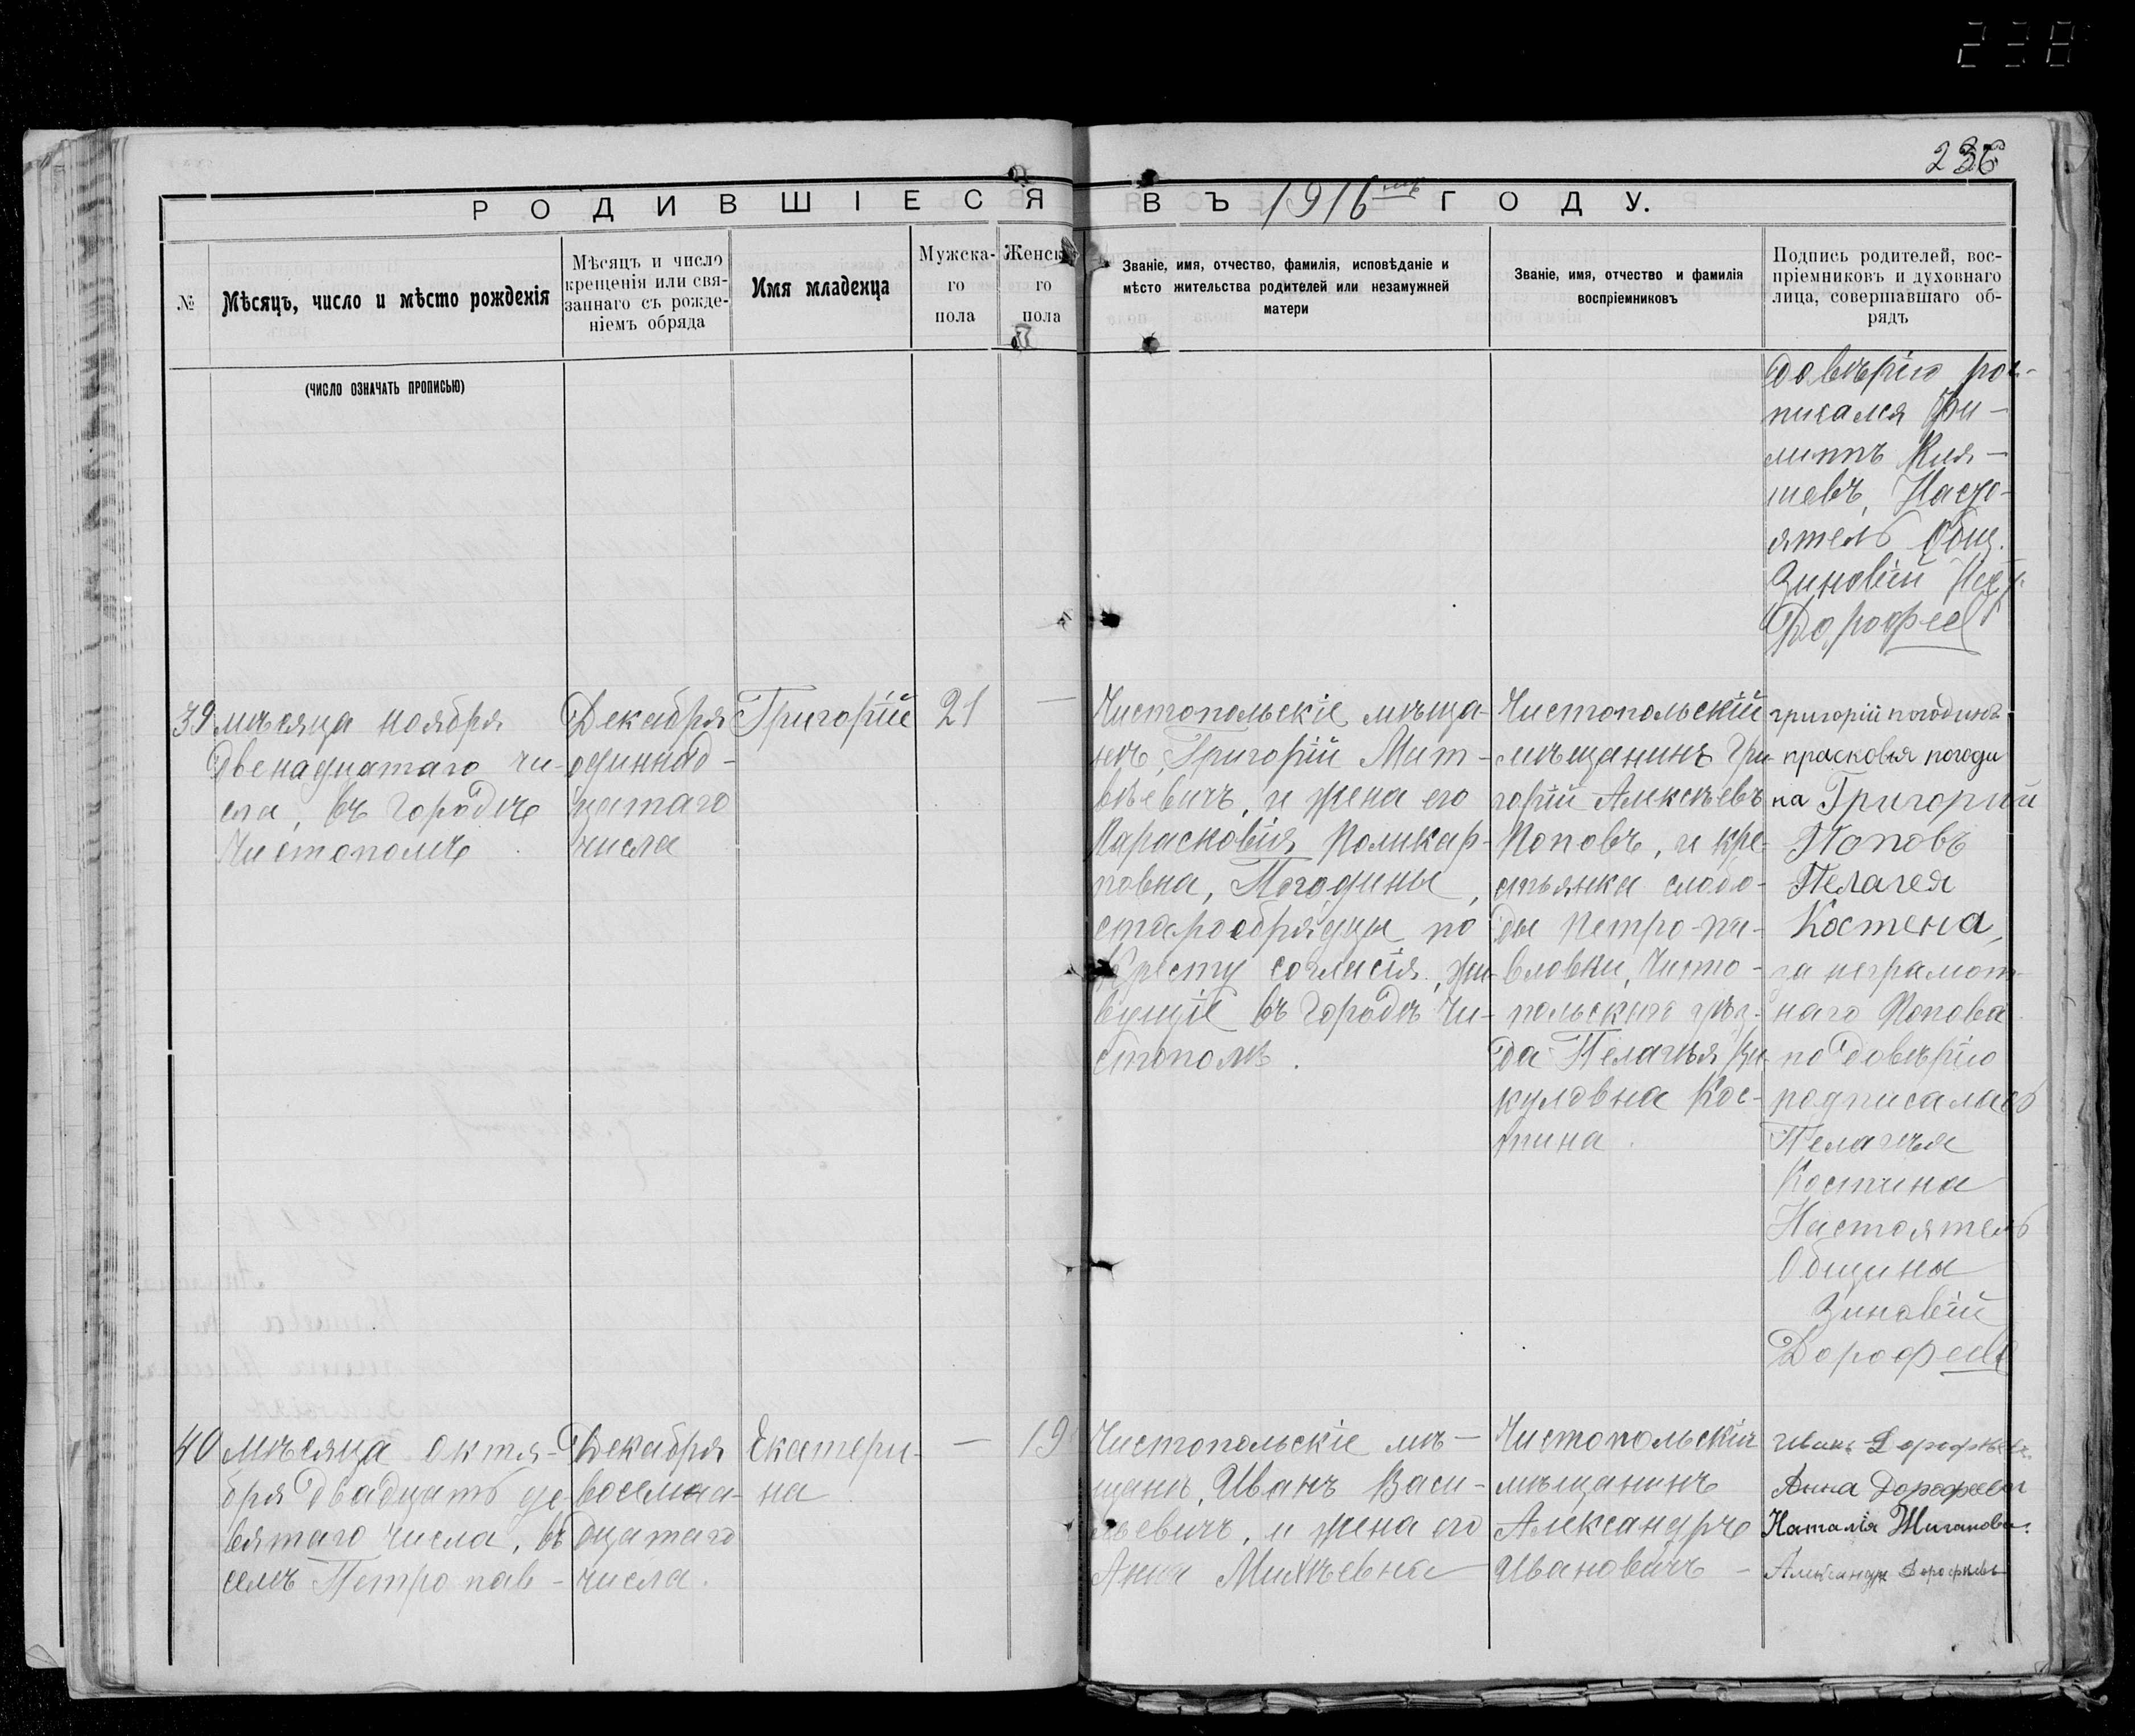 238
236
РОДИВШІЕСЯ ВЪ 1916мъ ГОДУ.
№
Мѣсяцъ, число и мѣсто рожденія
Мѣсяцъ и число
крещенія или свя-
заннаго съ рожде-
ніемъ обряда
Имя младенца
Мужска-
го
пола
Женск
го
пола
Званіе, имя, отчество, фамилія, исповѣданіе и
мѣсто жительства родителей или незамужней
матери
Званіе, имя, отчество и фамилія
воспріемниковъ
Подпись родителей, вос-
пріемниковъ и духовнаго
лица, совершавшаго об-
рядъ
(ЧИСЛО ОЗНАЧАТЬ ПРОПИСЬЮ)
довѣрію рос-
писался Фи-
липпъ Кня-
шевъ, Насто-
ятель Общ.
Зиновій
Дорофеев
39
мѣсяца ноября
двенадцатаго чи-
сла, въ городѣ
Чистополѣ
Декабря
одиннад-
цатаго
числа
Григорій
21
—
Чистопольскіе мѣща-
нѣ, Григорій Мат-
вѣевичъ, и жена его
Парасковія Поликар-
повна, Погодины,
старообрядцы по
Кресту согласія, жи-
вущіе въ городѣ Чи-
стополѣ.
Чистопольскій
мѣщанинъ Гри-
горій Алексѣевъ
Поповъ, и кре-
стьянка слобо-
ды Петро-па-
вловки, Чисто-
польскаго уѣз-
да Пелагѣя Ви-
куловна Кос-
тина.
григорій погодинъ
прасковья погоди
на Григорий
Поповъ
Пелагея
Костена,
за неграмот-
наго Попова
по довѣрію
подписалась
Пелагѣя
Костина
Настоятель
Общины
Зиновій
Дорофеев
40
Мѣсяца октя-
бря двадцать де-
вятаго числа, въ
селѣ Петропав-
Декабря
восемна-
дцатаго
числа.
Екатери-
на
—
19
Чистопольскіе мѣ-
щанѣ, Иванъ Васи-
льевичъ, и жена его
Анна Михѣевна
Чистопольскій
мѣщанинъ
Александръ
Ивановичъ -
Иванъ Дорофѣевъ.
Анна Дорофеева
Наталія Жиганова.
Александръ Дорофѣевъ